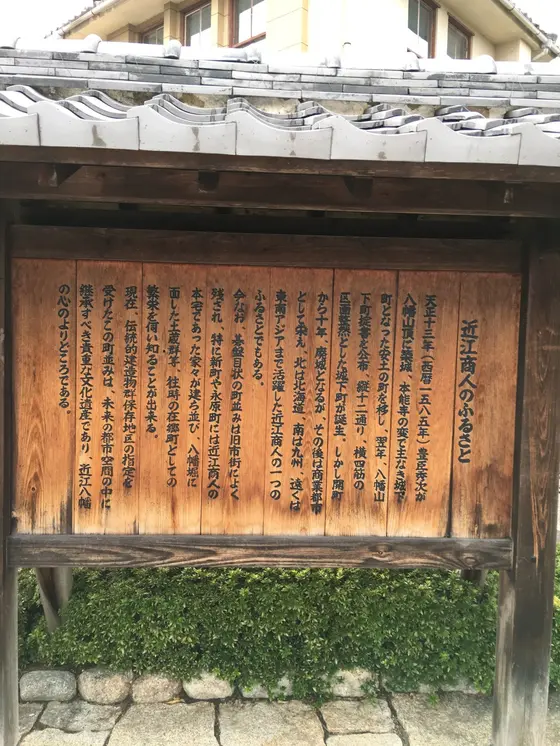 近江商人のふるさと
天正十三年（西暦一五八五年）豊臣秀次が
八幡山頂に築城、本能寺の変で主なき城下
町となった安土の町を移し、翌年、八幡山
下町掟書を公布、縦十二通り、横四筋の
区画整然とした城下町が誕生、しかし開町
から十年、廃城となるが、その後は商業都市
として栄え、北は北海道、南は九州、遠くは
東南アジアまで活躍した近江商人の一つの
ふるさとでもある。
今なお、碁盤目状の町並みは旧市街によく
残され、特に新町や永原町には近江商人の
本宅であった家々が建ち並び、八幡堀に
面した土蔵群は、往時の在郷町としての
繁栄を伺い知ることが出来る。
現在、伝統的建造物群保存地区の指定を
受けたこの町並みは、未来の都市空間の中に
継承すべき貴重な文化遺産であり、近江八幡
の心のよりどころである。